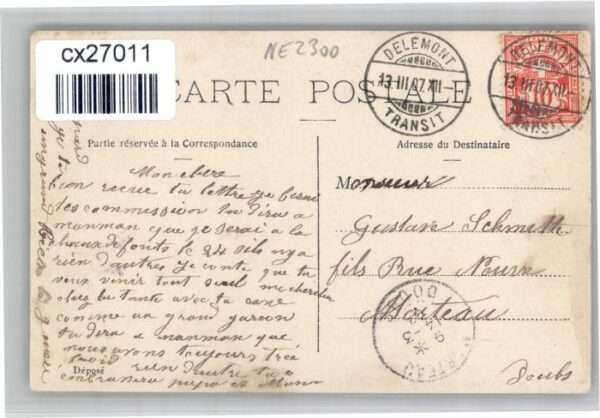 cx27011
NE2300
CARTE POSTALE
DELÉMONT
13 III 07 XII
TRANSIT
DELÉMONT
13 III 07 XII
TRANSIT
10
Partie réservée à la Correspondance
Adresse du Destinataire
Mon chere
ton recue ta lettre je ferai
tes commission tu dira a
manman que je serai a la
chaux de fonts le 24 sils nya
rien d'autres je conte que tu
veux venir tout seul me chercher
chez ta tante avec ta cane
comme un grand garcon
tu dira a manman que
nous avons toujours tres
froid rien d'autre tu
embrassera papa et Maman
Monsieur
Gustave Schmitte
fils Rue Neuve
Morteau
Doubs
MORTEAU
DOUBS
Déposé